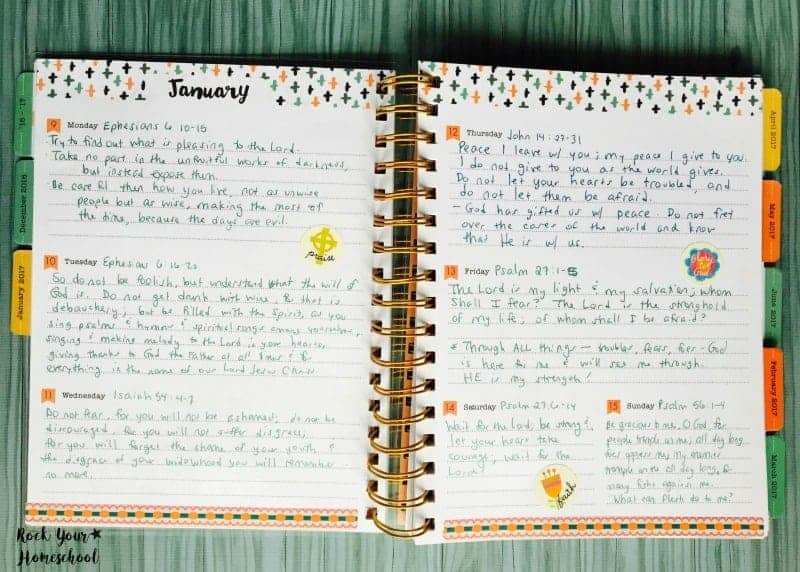 January
16 - 17
December 2016
January 2017
9 Monday Ephesians 6 10-15
Try to find out what is pleasing to the Lord.
Take no part in the unfruitful works of darkness,
but instead expose them.
Be careful then how you live, not as unwise
people but as wise, making the most of
the time, because the days are evil.
praise
10 Tuesday Ephesians 6:16-20
So do not be foolish, but understand what the will of
God is. Do not get drunk with wine, for that is
debauchery, but be filled with the Spirit, as you
sing psalms & hymns & spiritual songs among yourselves,
singing & making melody to the Lord in your hearts
giving thanks to God the Father at all times & for
everything in the name of our Lord Jesus Christ
11 Wednesday Isaiah 54:4-7
Do not fear, for you will not be ashamed; do not be
discouraged, for you will not suffer disgrace;
for you will forget the shame of your youth &
the disgrace of your widowhood you will remember
no more.
12 Thursday John 14:27-31
Peace I leave w/ you; my peace I give to you.
I do not give to you as the world gives.
Do not let your hearts be troubled, and
do not let them be afraid.
- God has gifted us w/ peace. Do not fret
over the cares of the world and know
that He is w/ us.
Glory to God
13 Friday Psalm 27:1-5
The Lord is my light & my salvation; whom
shall I fear? The Lord is the stronghold
of my life; of whom shall I be afraid?
* Through ALL things - troubles, fears, foes - God
is here for me & will see me through.
HE is my strength!
14 Saturday Psalm 27:6-14
Wait for the Lord; be strong &
let your heart take
courage; wait for the
Lord!
faith
15 Sunday Psalm 56:1-4
Be gracious to me, O God, for
people trample on me; all day long
foes oppress me; my enemies
trample on me all day long, for
many fight against me.
What can flesh do to me?
April 2017
May 2017
June 2017
February 2017
March 2017
Rock Your
Homeschool